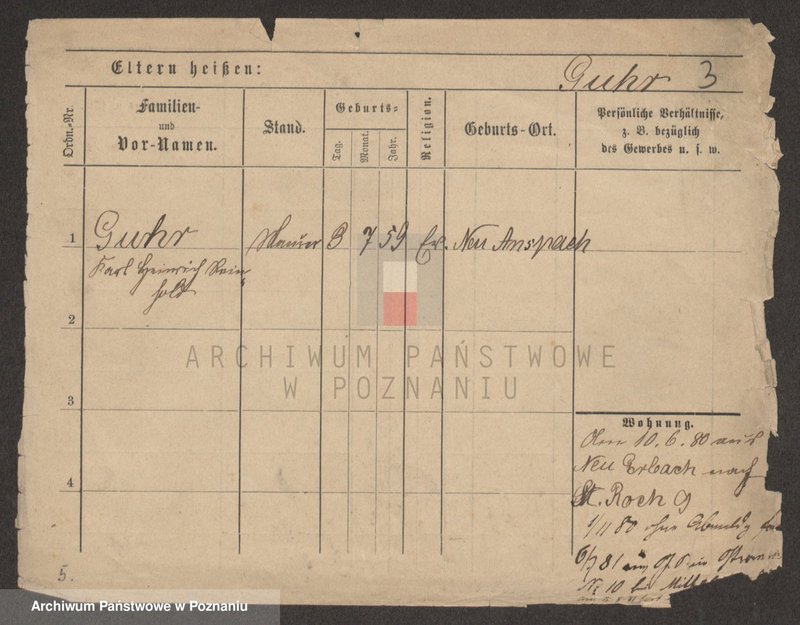 Eltern heißen:
Guhr 3
Ordn.-Nr.
Familien-
und
Vor-Namen.
Stand.
Geburts-
Tag.
Monat.
Jahr.
Religion.
Geburts-Ort.
Persönliche Verhältnisse,
z. B. bezüglich
des Gewerbes u. s. w.
1 Guhr Maurer 3 7 59 Ev. Neu Anspach
Karl Heinrich Rein-
hold
2
ARCHIWUM PAŃSTWOWE
W POZNANIU
3
Wohnung.
10.6.80 aus
Neu Erbach nach
4
St. Roch 9
1/11 80 ohne
6/7 81
No 10 bei
5.
Archiwum Państwowe w Poznaniu